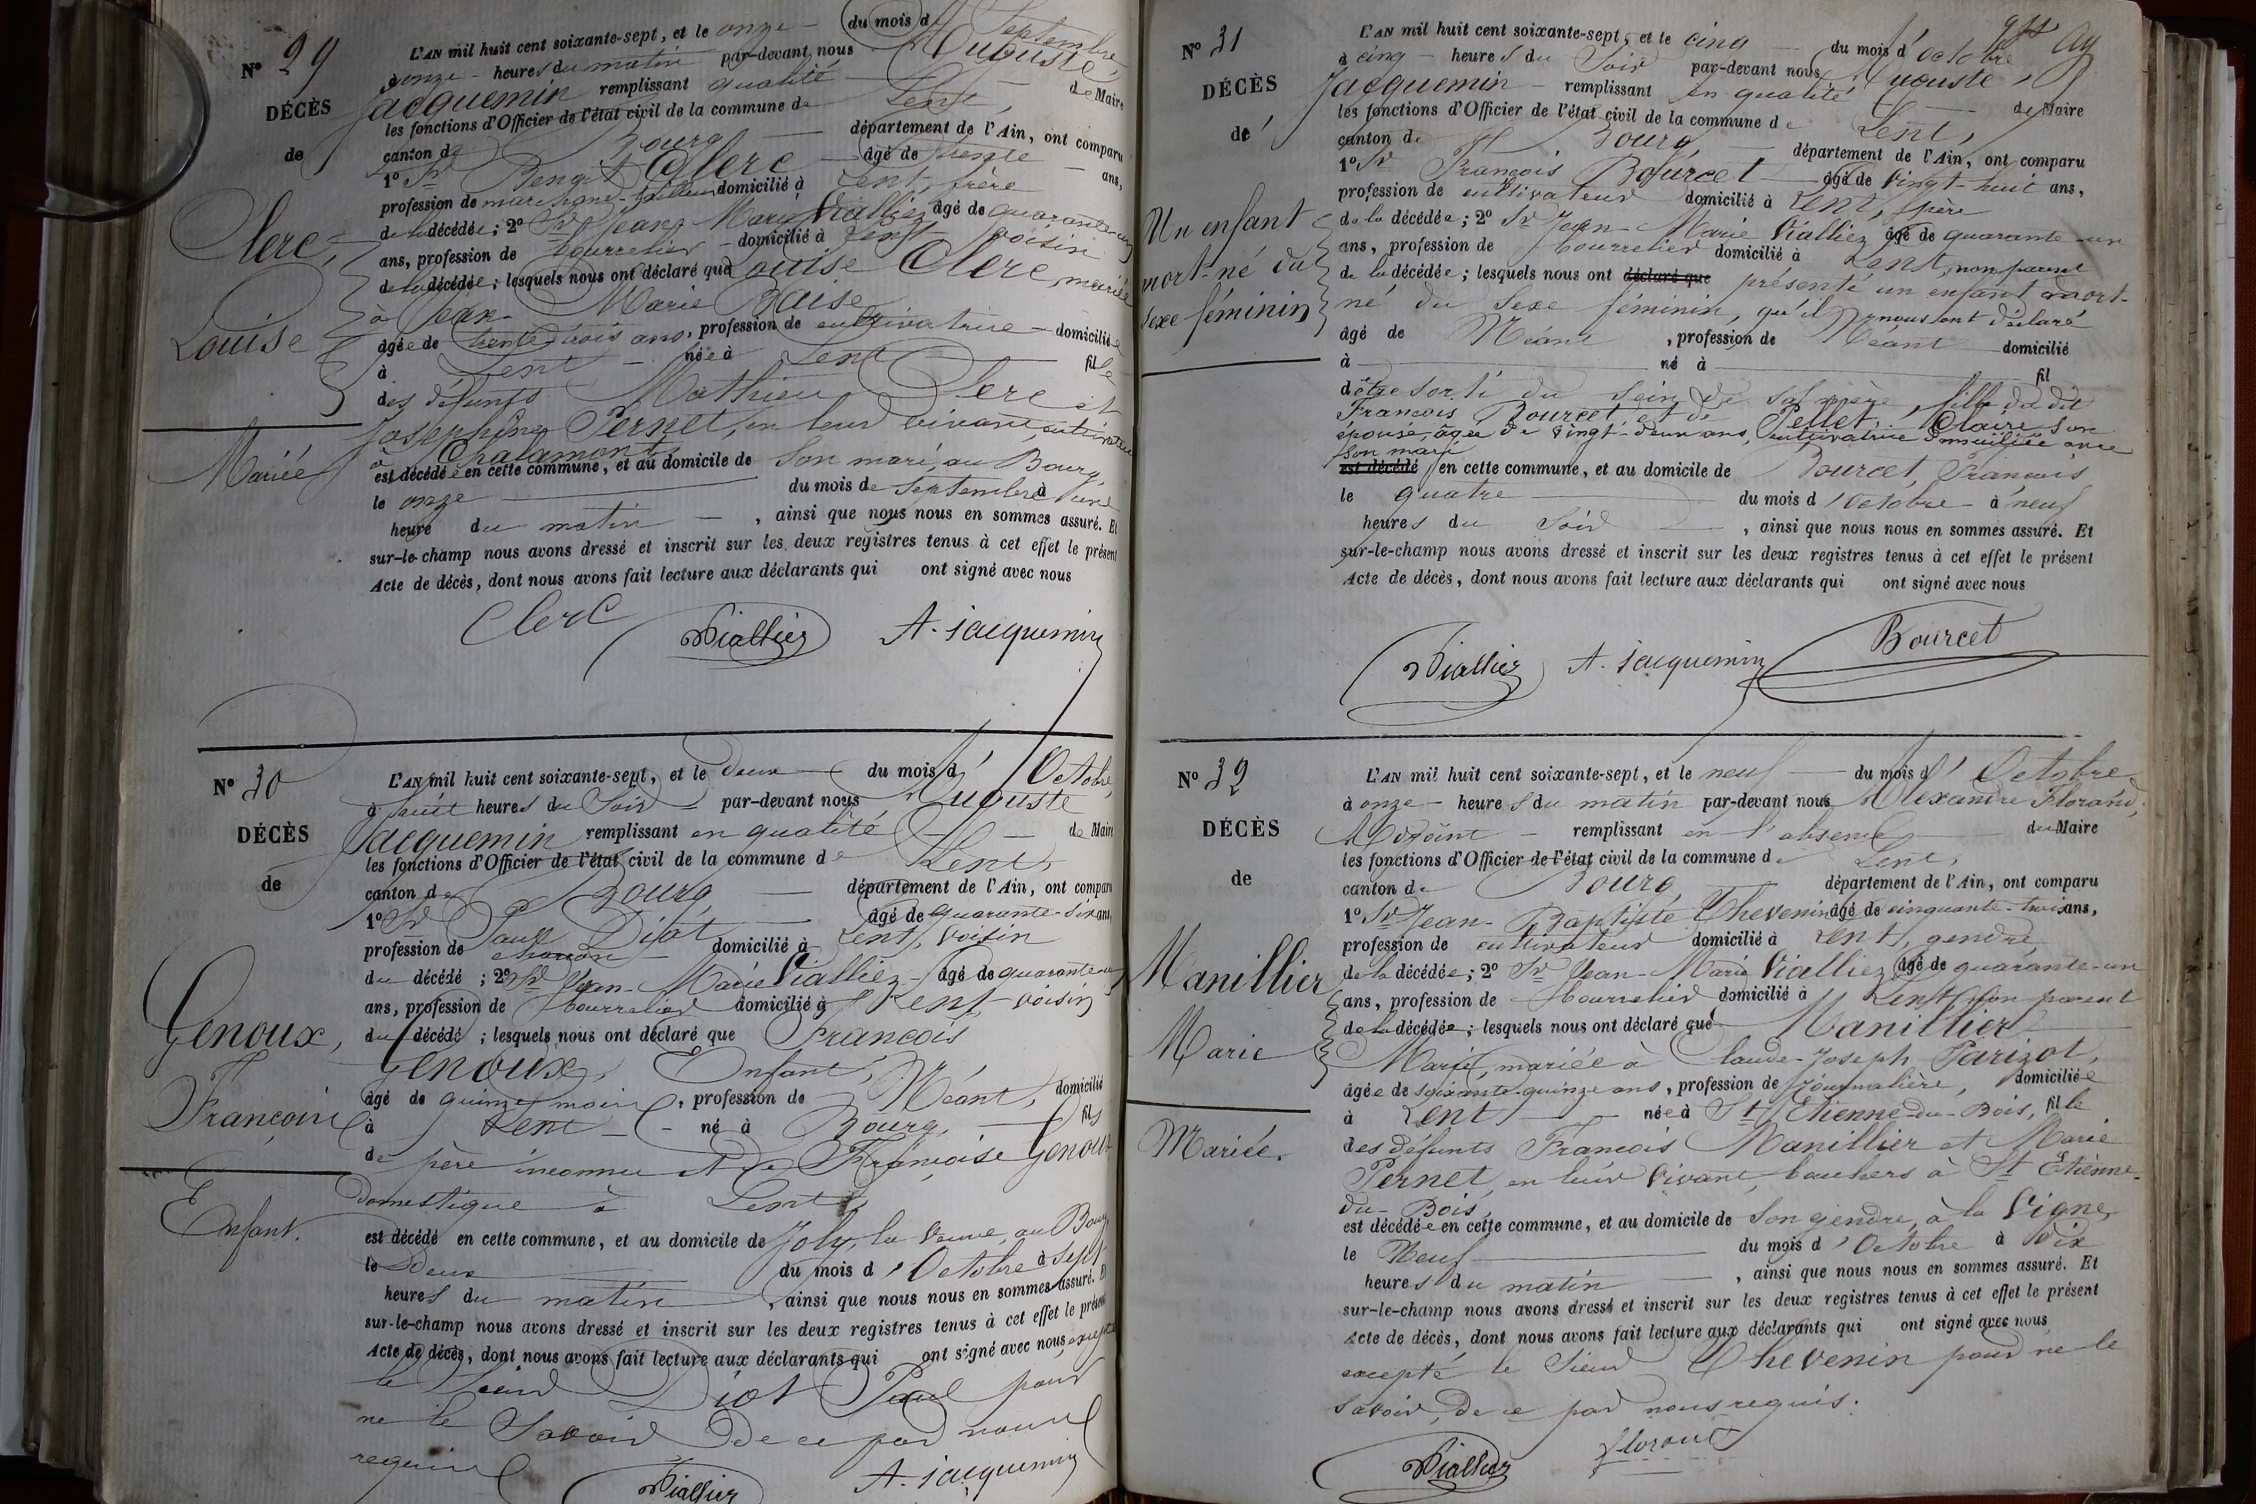 N° 29
DÉCÈS
de
Clerc,
Louise
Mariée
L'AN mil huit cent soixante-sept, et le onze du mois de Septembre,
à onze heures du matin par-devant nous Auguste
Jacquemin remplissant qualité de Maire
les fonctions d'Officier de l'état civil de la commune de Lent,
canton de Bourg département de l'Ain, ont comparu
1° Sr Benoit Clerc âgé de trente ans,
profession de marchand-tailleur domicilié à Lent, frère
de la décédée; 2° Sr Jean-Marie Vialliez âgé de quarante-un
ans, profession de bourrelier domicilié à Lent voisin
de la décédée; lesquels nous ont déclaré que Louise Clerc, mariée
à Jean-Marie Baise
âgée de trente-trois ans, profession de cultivatrice domiciliée
à Lent née à Lent fille
des défunts Mathieu Clerc et
Josephine Pernet, en leur vivant, cultivateurs
à Chalamont
est décédée en cette commune, et au domicile de son mari, au Bourg,
le onze du mois de Septembre à une
heure du matin, ainsi que nous nous en sommes assuré. Et
sur-le-champ nous avons dressé et inscrit sur les deux registres tenus à cet effet le présent
Acte de décès, dont nous avons fait lecture aux déclarants qui ont signé avec nous
Clerc Vialliez A. Jacquemin
N° 30
DÉCÈS
de
Genoux,
François
Enfant.
L'AN mil huit cent soixante-sept, et le deux du mois d'Octobre,
à huit heures du Soir par-devant nous Auguste
Jacquemin remplissant en qualité de Maire
les fonctions d'Officier de l'état civil de la commune de Lent,
canton de Bourg département de l'Ain, ont comparu
1° Sr Paul Diot âgé de quarante-six ans,
profession de charron domicilié à Lent, voisin
du décédé; 2° Sr Jean-Marie Vialliez âgé de quarante-un
ans, profession de bourrelier domicilié à Lent, voisin
du décédé; lesquels nous ont déclaré que François
Genoux, Enfant,
âgé de quinze mois, profession de Néant, domicilié
à Lent né à Bourg, fils
de père inconnu et de Françoise Genoux
domestique à Lent,
est décédé en cette commune, et au domicile de Joly, la Veuve, au Bourg
le Deux du mois d'Octobre à Sept
heures du matin, ainsi que nous nous en sommes assuré. Et
sur-le-champ nous avons dressé et inscrit sur les deux registres tenus à cet effet le présent
Acte de décès, dont nous avons fait lecture aux déclarants qui ont signé avec nous excepté
le Sieur Diot Paul pour
ne le Savoir de ce par nous
requis
Vialliez A. Jacquemin
N° 31
DÉCÈS
de
Un enfant
mort-né du
Sexe féminin
L'AN mil huit cent soixante-sept, et le cinq du mois d'Octobre
à cinq heures du Soir par-devant nous Auguste
Jacquemin remplissant en qualité de Maire
les fonctions d'Officier de l'état civil de la commune de Lent,
canton de Bourg département de l'Ain, ont comparu
1° Sr François Bourcet âgé de vingt-huit ans,
profession de cultivateur domicilié à Lent, père
de la décédée; 2° Sr Jean-Marie Vialliez âgé de quarante-un
ans, profession de bourrelier domicilié à Lent, non parent
de la décédée; lesquels nous ont déclaré que présenté un enfant mort-
né du Sexe féminin, qu'il nous ont déclaré
âgé de Néant, profession de Néant domicilié
à né à fil
d'être sorti du sein de sa mère, fille du dit
François Bourcet et de Pellet, Claire son
épouse, âgée de vingt-deux ans, cultivatrice domiciliée avec
son mari
est décédé en cette commune, et au domicile de Bourcet, François
le quatre du mois d'Octobre à neuf
heures du Soir, ainsi que nous nous en sommes assuré. Et
sur-le-champ nous avons dressé et inscrit sur les deux registres tenus à cet effet le présent
Acte de décès, dont nous avons fait lecture aux déclarants qui ont signé avec nous
Vialliez A. Jacquemin Bourcet
N° 32
DÉCÈS
de
Manillier
Marie
Mariée.
L'AN mil huit cent soixante-sept, et le neuf du mois d'Octobre
à onze heures du matin par-devant nous Alexandre Florand,
Adjoint remplissant en l'absence du Maire
les fonctions d'Officier de l'état civil de la commune de Lent,
canton de Bourg département de l'Ain, ont comparu
1° Sr Jean-Baptiste Thevenin âgé de cinquante-trois ans,
profession de cultivateur domicilié à Lent, gendre
de la décédée; 2° Sr Jean-Marie Vialliez âgé de quarante-un
ans, profession de bourrelier domicilié à Lent, non parent
de la décédée; lesquels nous ont déclaré que Manillier
Marie, mariée à Claude-Joseph Parizot,
âgée de soixante-quinze ans, profession de Journalière, domiciliée
à Lent née à St Etienne-du-Bois, fille
des défunts François Manillier et Marie
Pernet, en leur vivant, bouchers à St Etienne-
du-Bois,
est décédée en cette commune, et au domicile de son gendre, à la Vigne
le Neuf du mois d'Octobre à Dix
heures du matin, ainsi que nous nous en sommes assuré. Et
sur-le-champ nous avons dressé et inscrit sur les deux registres tenus à cet effet le présent
Acte de décès, dont nous avons fait lecture aux déclarants qui ont signé avec nous
excepté le Sieur Thevenin pour ne le
savoir, de ce par nous requis.
Vialliez Florand